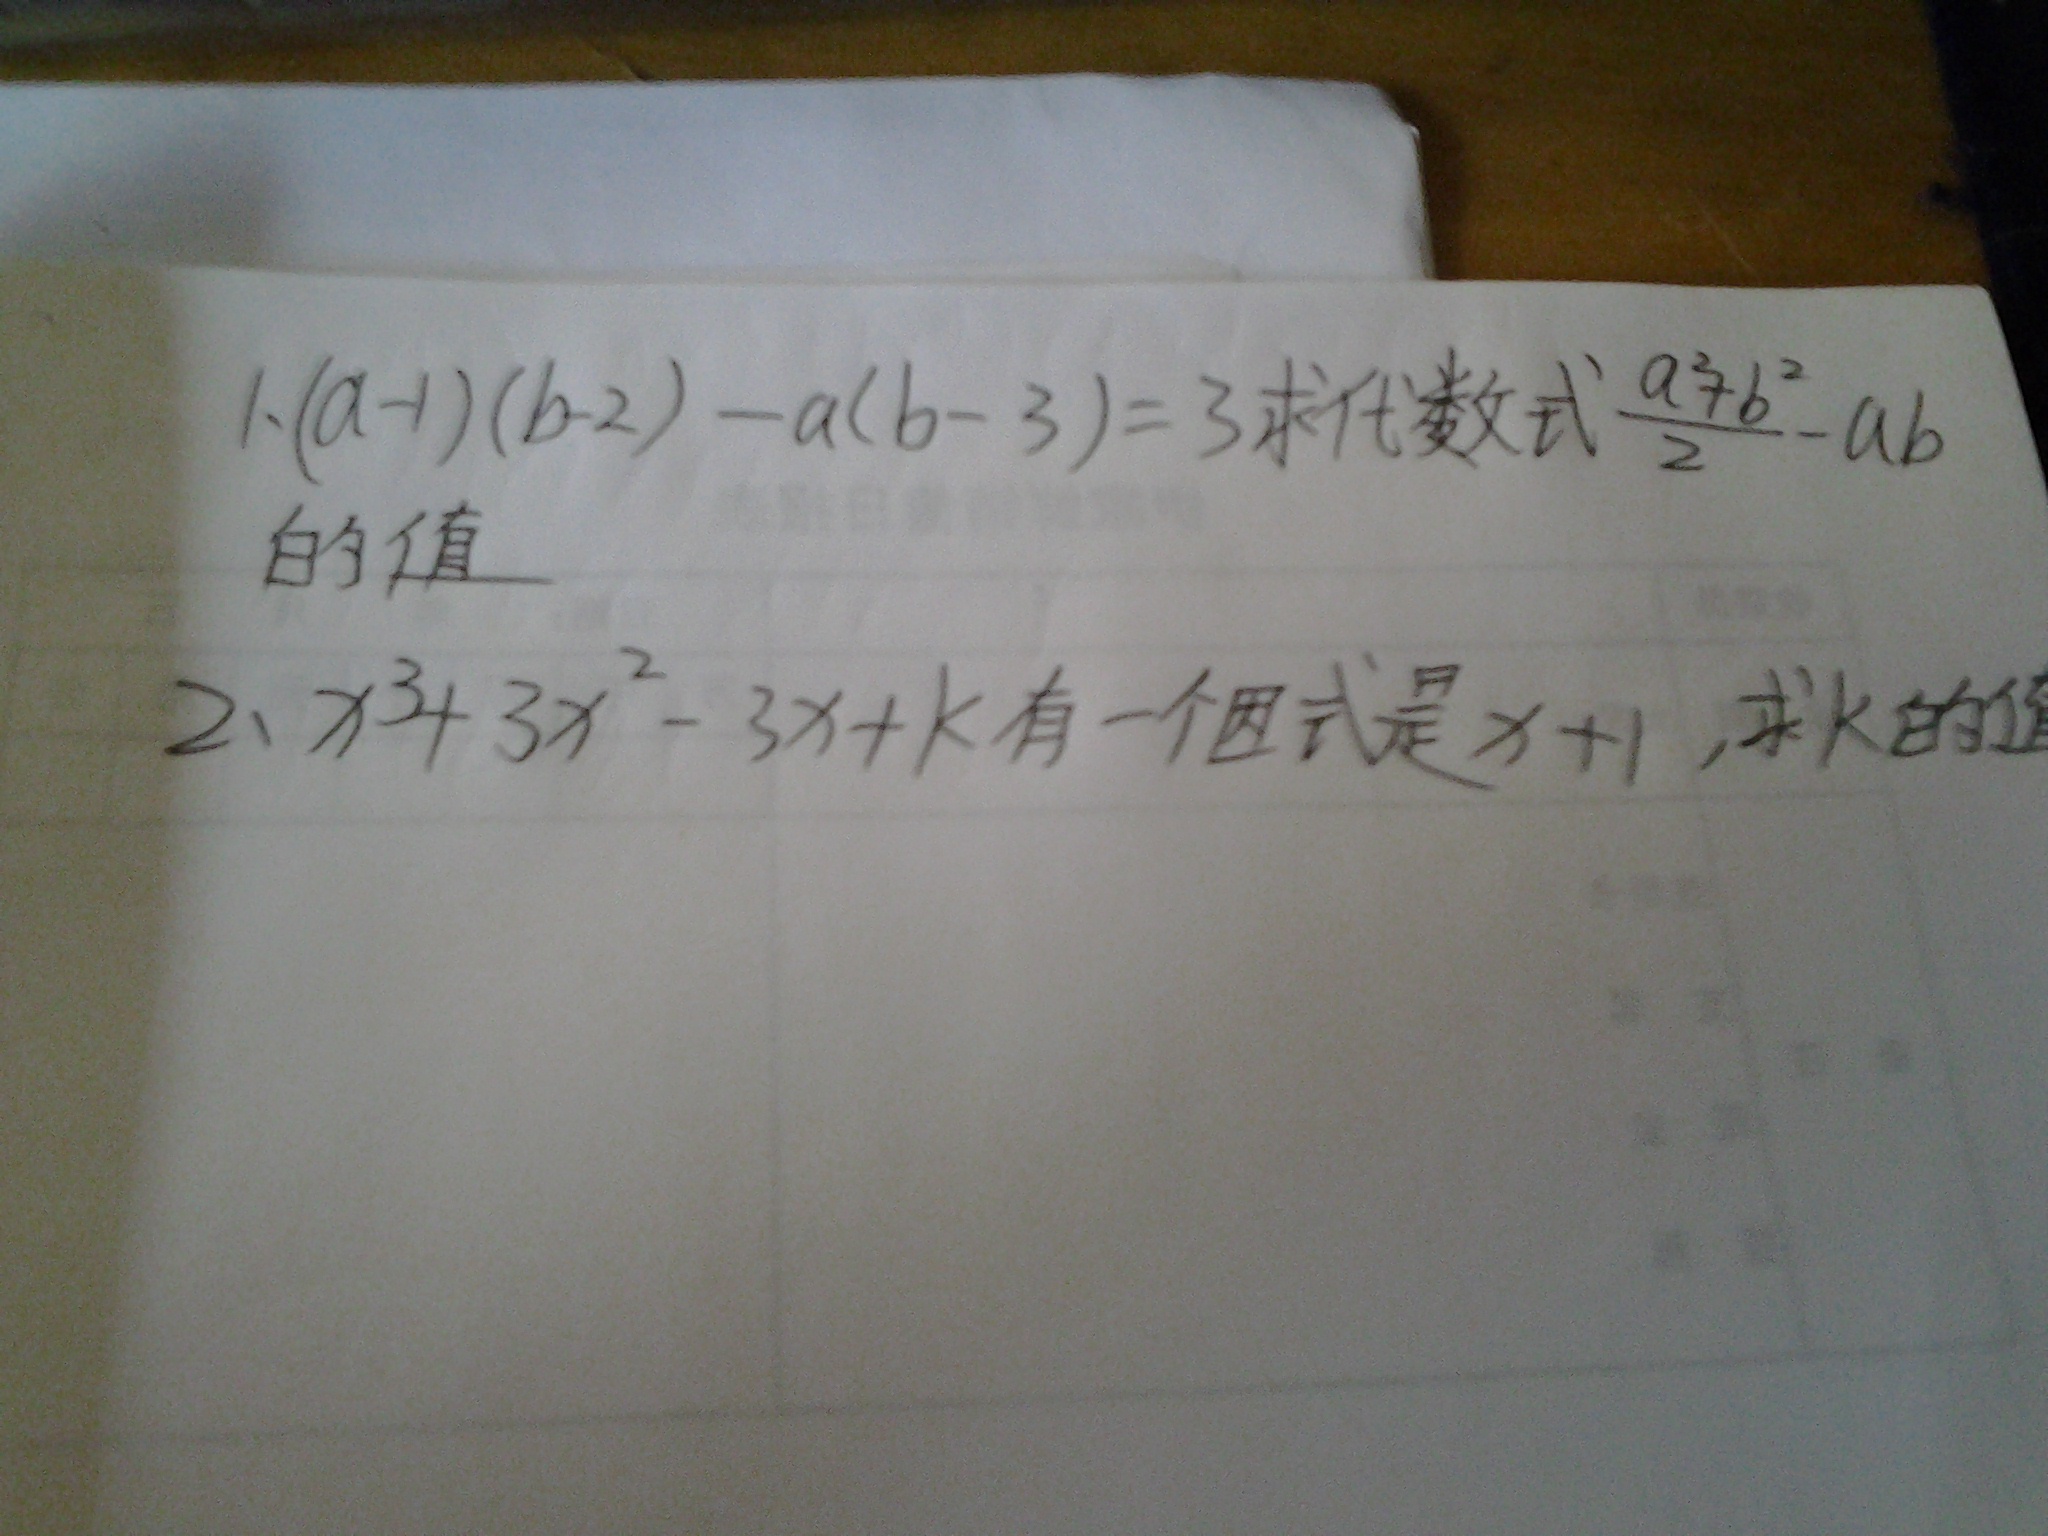 1、(a-1)(b-2)-a(b-3)=3求代数式 a²+b²/2 - ab
的值
2、x³+3x²-3x+k有一个因式是x+1,求k的值